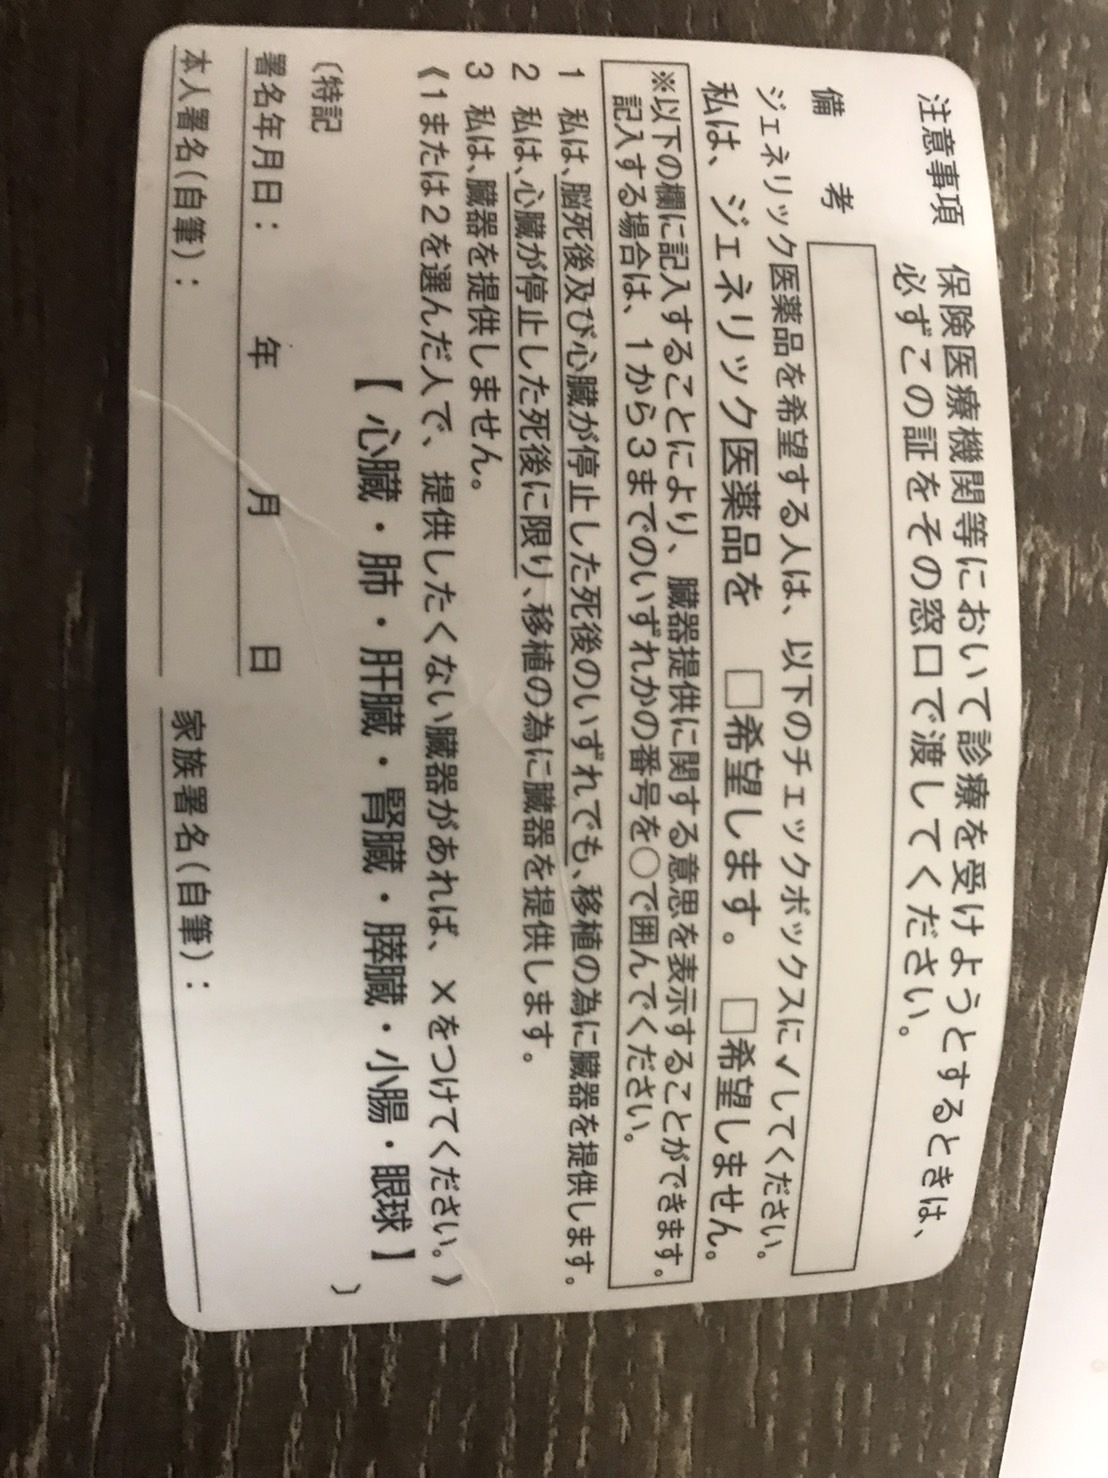 注意事項　保険医療機関等において診療を受けようとするときは、
必ずこの証をその窓口で渡してください。
備　考
ジェネリック医薬品を希望する人は、以下のチェックボックスに✓してください。
私は、ジェネリック医薬品を　□希望します。　□希望しません。
※以下の欄に記入することにより、臓器提供に関する意思を表示することができます。
記入する場合は、1から3までのいずれかの番号を○で囲んでください。
1　私は、脳死後及び心臓が停止した死後のいずれでも、移植の為に臓器を提供します。
2　私は、心臓が停止した死後に限り、移植の為に臓器を提供します。
3　私は、臓器を提供しません。
《1または2を選んだ人で、提供したくない臓器があれば、×をつけてください。》
【 心臓・肺・肝臓・腎臓・膵臓・小腸・眼球 】
〔特記　　　〕
署名年月日：　　年　　月　　日
本人署名(自筆)：　　家族署名(自筆)：